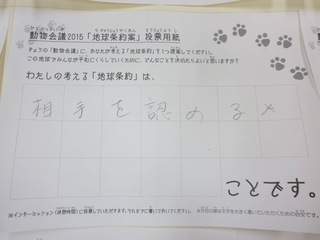 動物会議2015「地球条約案」投票用紙
きょうの「動物会議」に、あなたが考える「地球条約」を1つ提案してください。
この地球でみんなが平和にくらしていくために、どんなことを決めたらよいと思いますか?
わたしの考える「地球条約」は、
相手を認める×
ことです。
※インターミッション(休憩時間)に投票していただきます。それまでに書いておいてください。